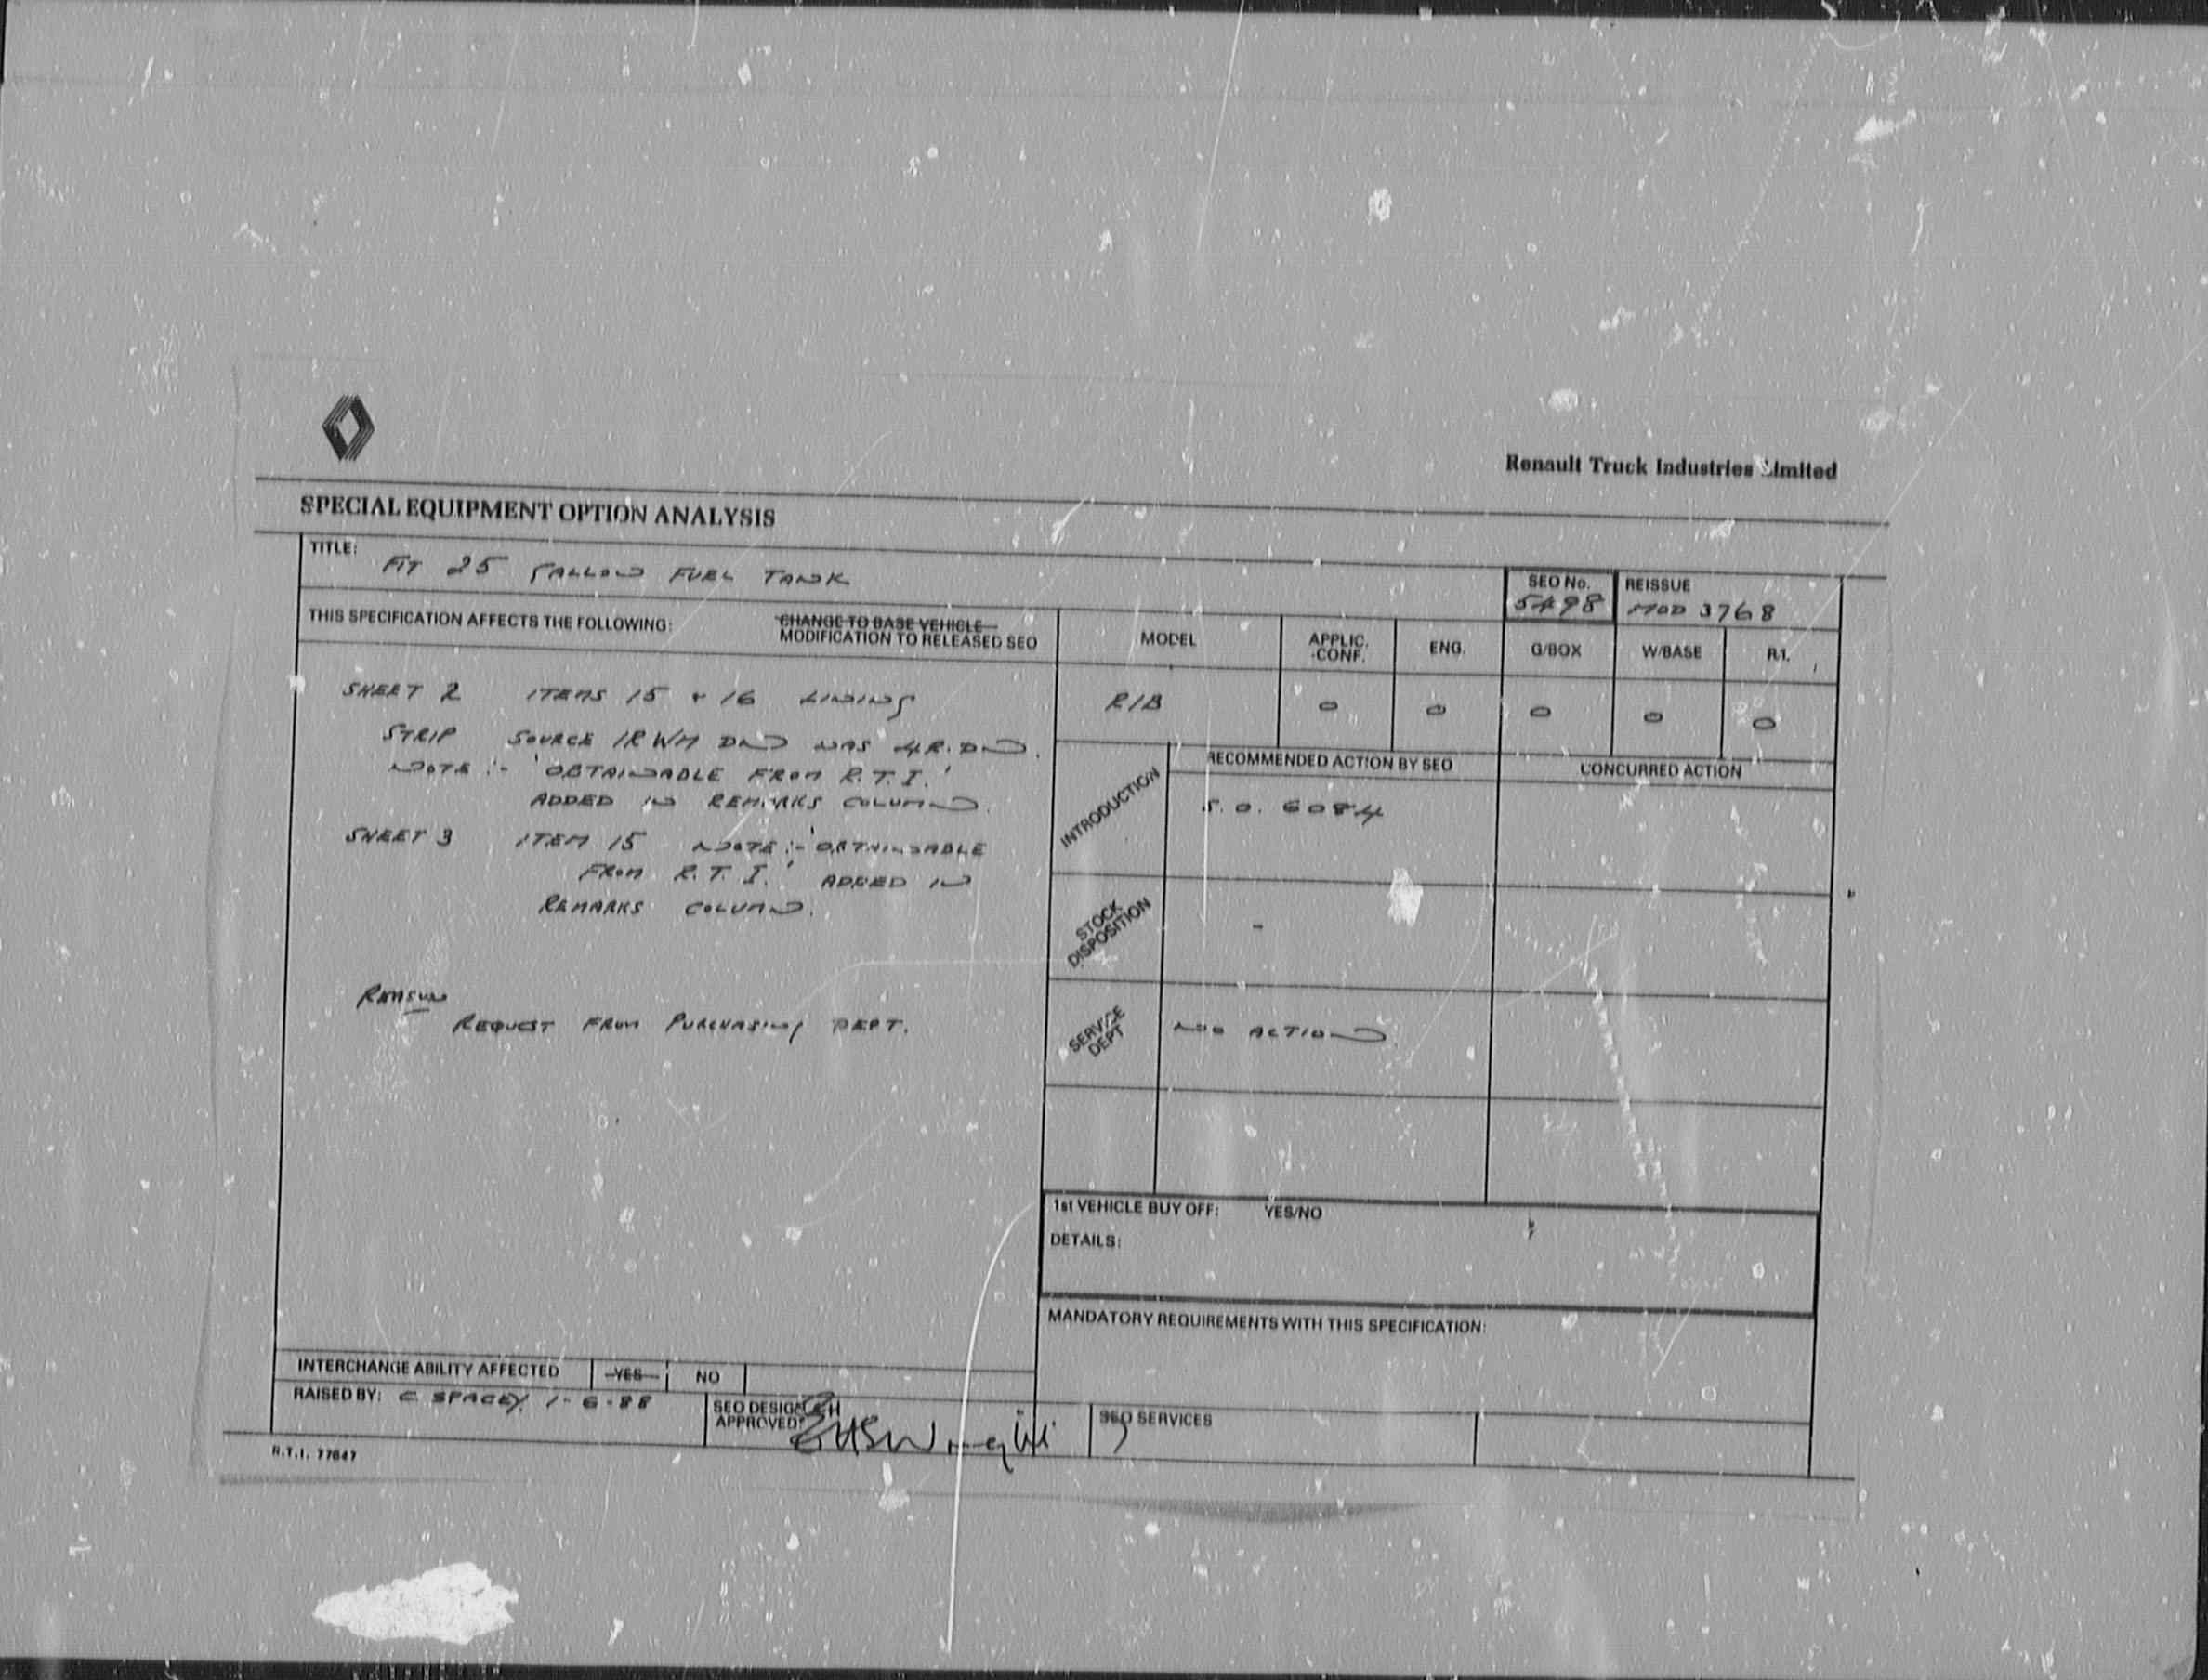 Renault Truck Industries Limited
SPECIAL EQUIPMENT OPTION ANALYSIS
TITLE: FIT 25 GALLON FUEL TANK
SEO No. 5498
REISSUE MOD 3768
THIS SPECIFICATION AFFECTS THE FOLLOWING:
CHANGE TO BASE VEHICLE
MODIFICATION TO RELEASED SEO
MODEL APPLIC. CONF. ENG. G/BOX W/BASE R.1.
R/B 0 0 0 0 0
SHEET 2 ITEMS 15 & 16 LINING
STRIP SOURCE IRWM DND WAS 4R.DND.
NOTE :- 'OBTAINABLE FROM R.T.I.'
ADDED IN REMARKS COLUMN.
SHEET 3 ITEM 15 NOTE :- 'OBTAINABLE
FROM R.T.I.' ADDED IN
REMARKS COLUMN.
REASON
REQUEST FROM PURCHASING DEPT.
RECOMMENDED ACTION BY SEO
CONCURRED ACTION
INTRODUCTION
S.O. 6084
STOCK DISPOSITION
-
SERVICE DEPT
NO ACTION
1st VEHICLE BUY OFF: YES/NO
DETAILS:
MANDATORY REQUIREMENTS WITH THIS SPECIFICATION:
INTERCHANGE ABILITY AFFECTED YES NO
RAISED BY: C SPACEY. 1-6-88
SEO DESIGN
APPROVED:
SEO SERVICES
R.T.I. 77647